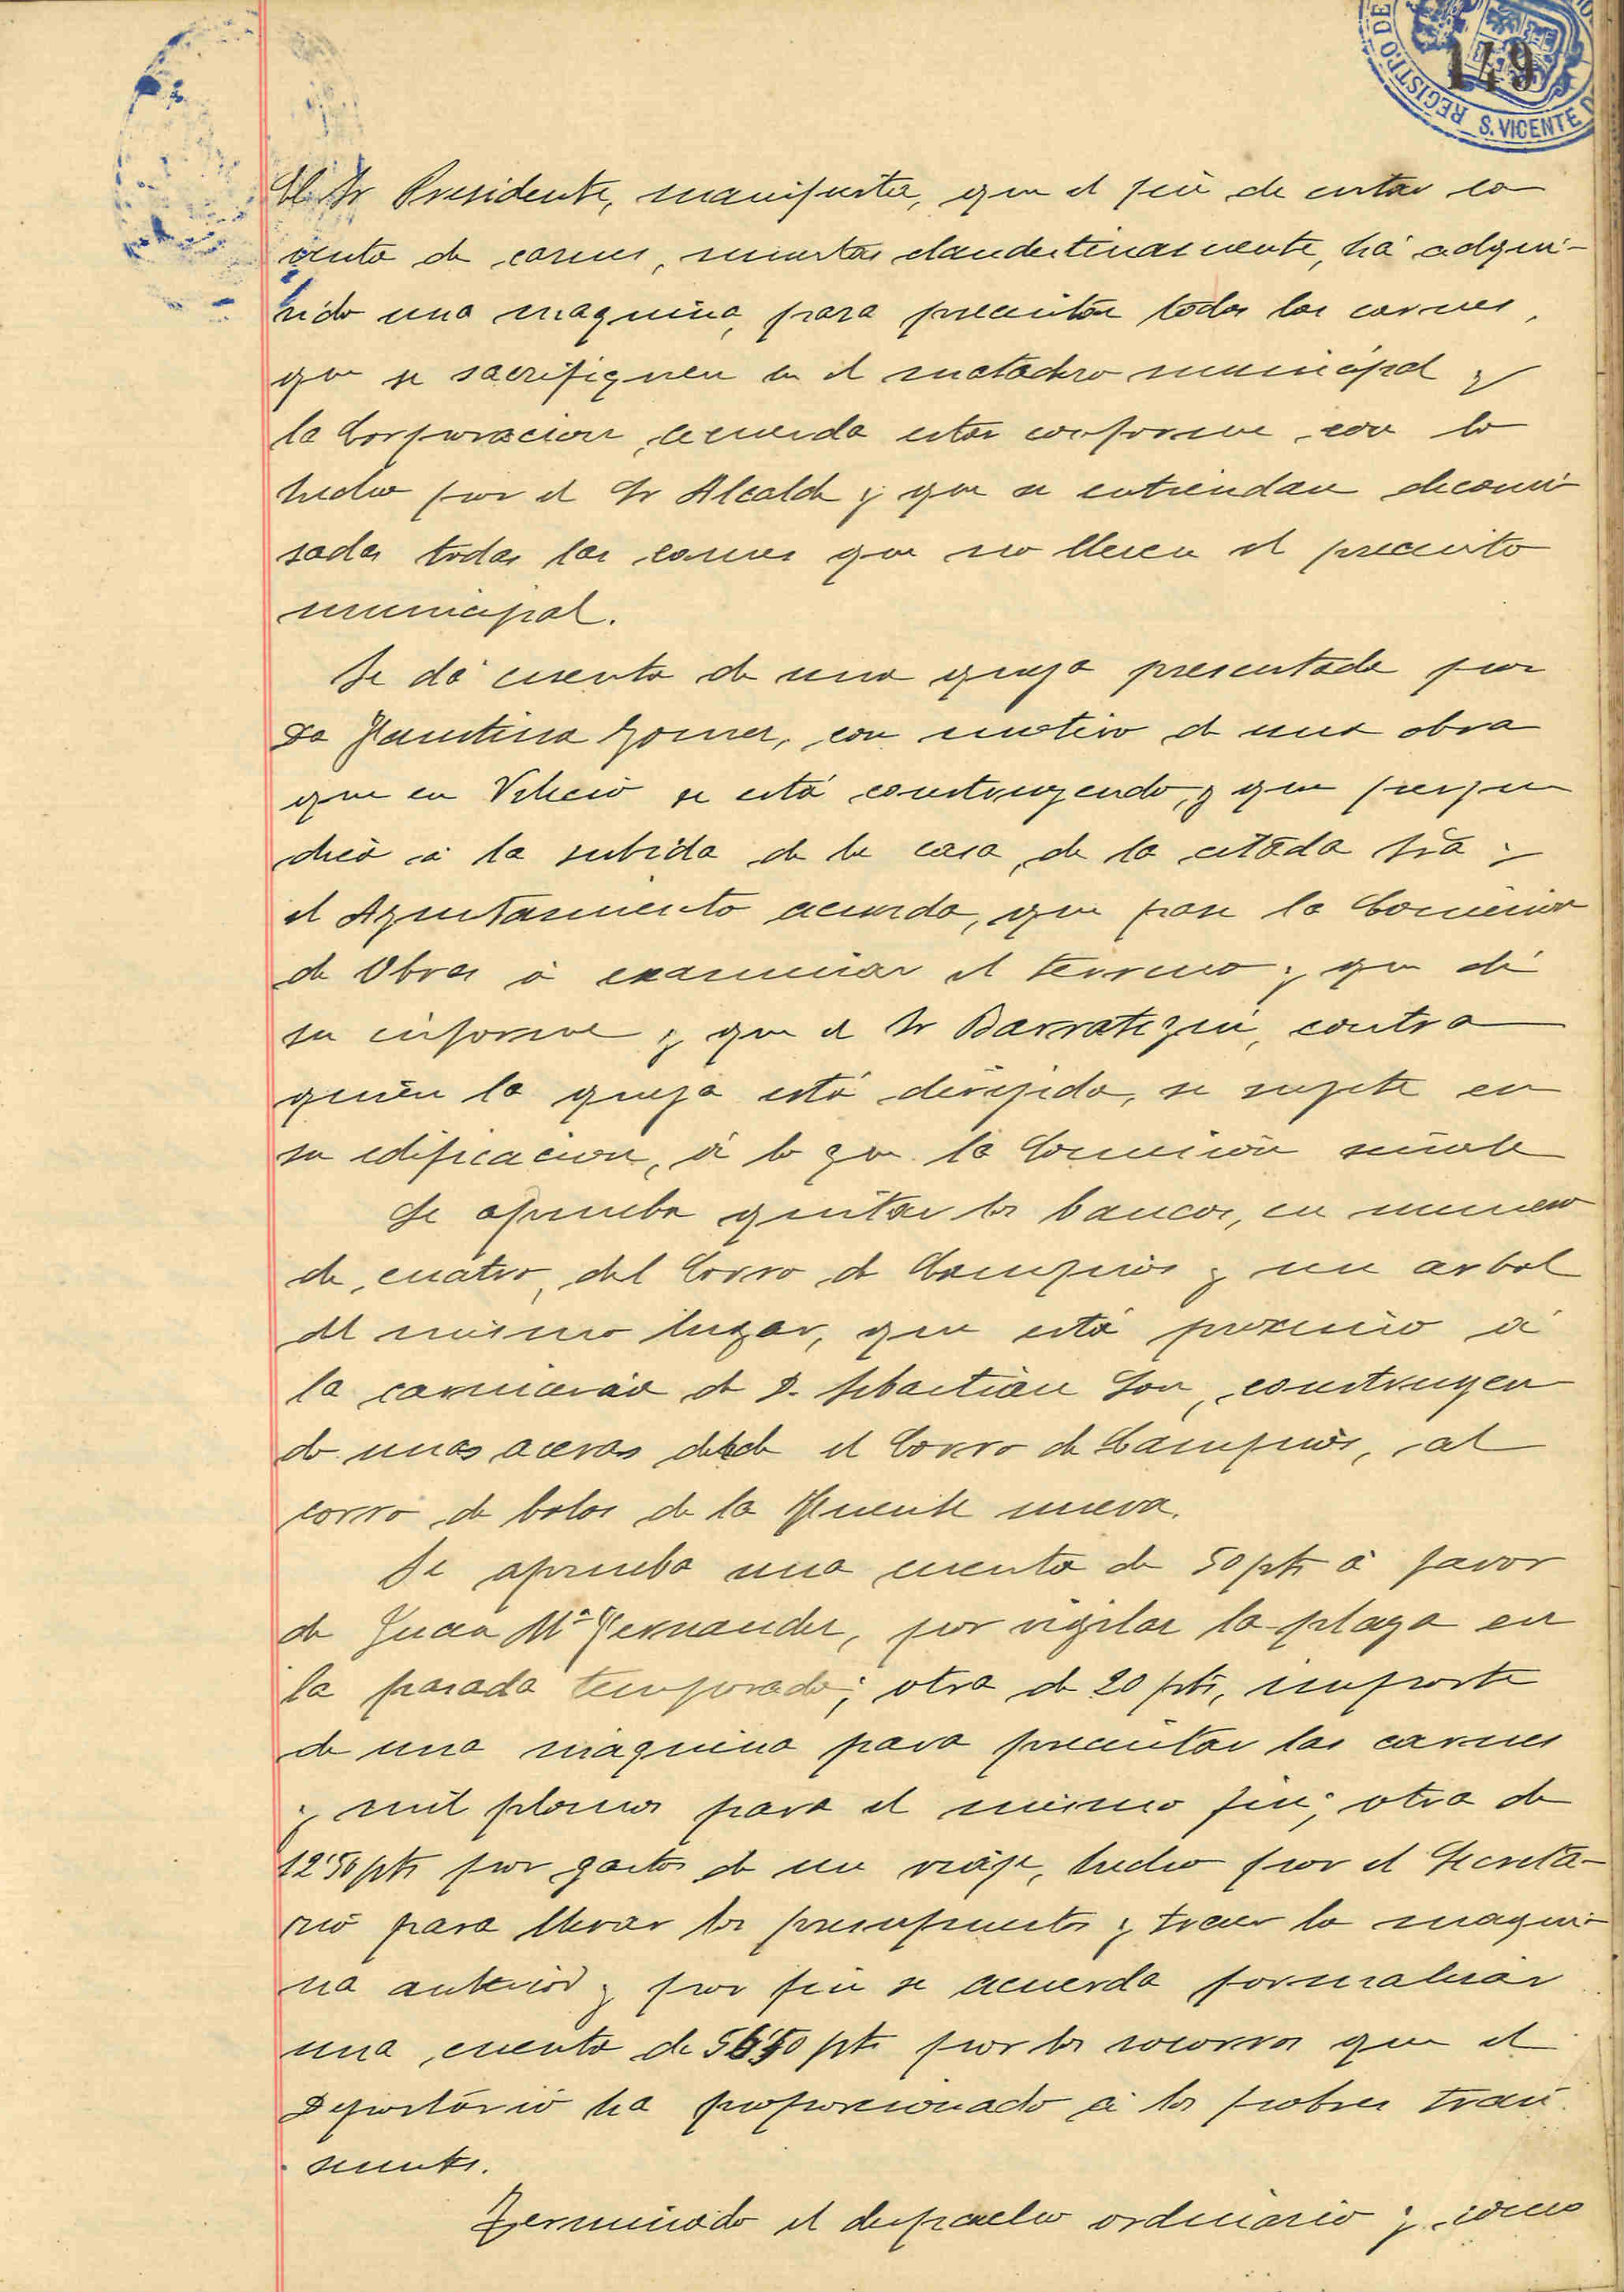 REGISTRO DE
S. VICENTE D
149
El Sr Presidente, manifiesta, que el fin de evitar la
venta de carnes, muertas clandestinamente, há adqui-
rido una maquina, para precintar todas las carnes,
que se sacrifiquen en el matadero municipal y
la Corporacion, acuerda estar conforme, con lo
hecho por el Sr Alcalde y que se entiendan decomi-
sadas todas las carnes que no lleven el precinto
municipal.
Se dá cuenta de una queja presentada por
Da Faustina Gomez, con motivo de una obra
que en Vilecio se está construyendo, y que perju
dica á la subida de la casa, de la citada Sra y
el Ayuntamiento acuerda, que pase la Comision
de Obras á examinar el terreno y que dé
su informe y que el Sr Barrategui, contra
quien la queja está dirijida, se sujete en
su edificacion, á lo que la Comision señale
Se aprueba quitar los bancos, en numero
de, cuatro, del Corro de Campios y un arbol
del mismo lugar, que está proximo á
la carniceria de D. Sebastian Son, construyen
do unas aceras desde el Corro de Campios, al
corro de bolos de la Fuente nueva.
Se aprueba una cuenta de 50 pts á favor
de Juan Mª Fernandez, por vigilar la plaza en
la pasada temporada; otra de 20 pts, importe
de una maquina para precintar las carnes
y mil plomos para el mismo fin; otra de
12'50 pts por gastos de un viaje, hecho por el Secreta-
rio para llevar los presupuestos y traer la maqui-
na anterior y por fin se acuerda formalizar
una, cuenta de pts por los socorros que el
Depositário ha proporcionado á los pobres tran
seuntes.
Terminado el despacho ordinario y como